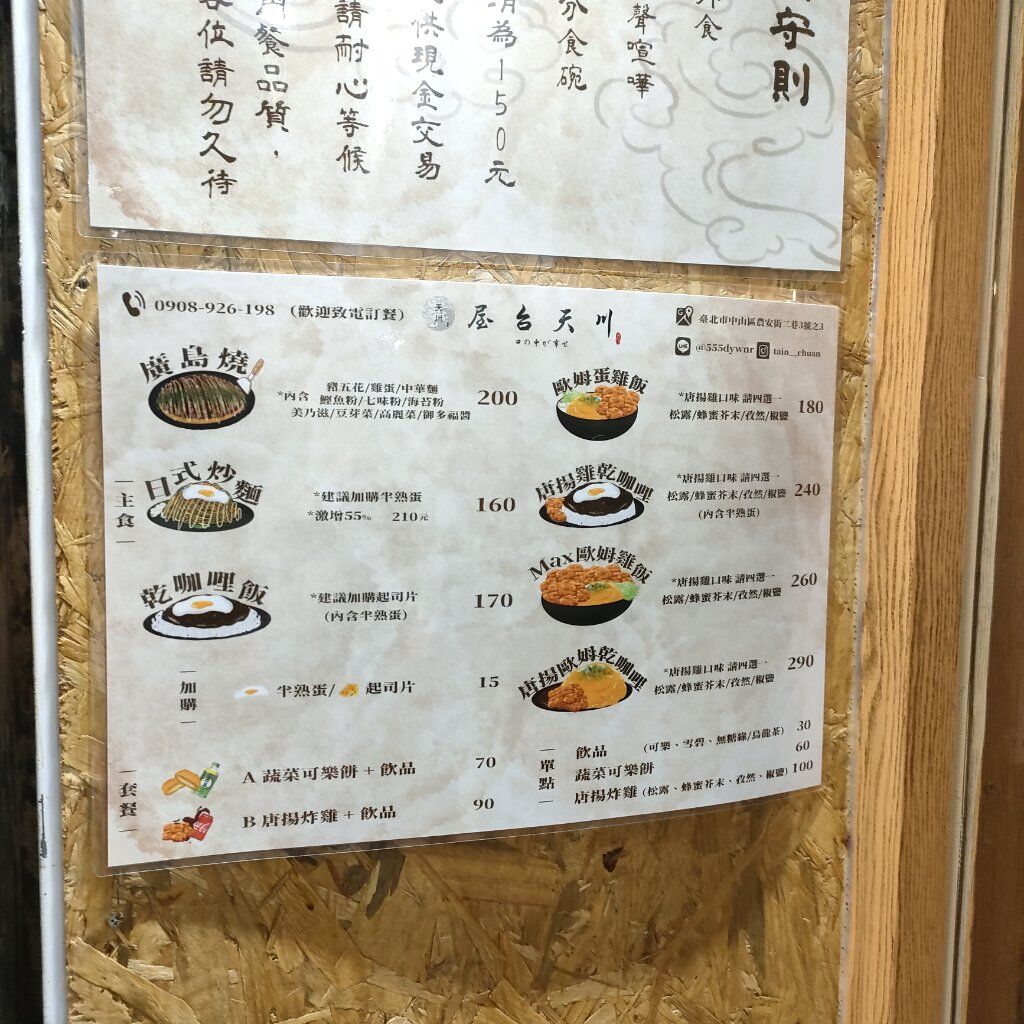 守則
食
聲喧嘩
分食碗
為150元
供現金交易
請耐心等候
餐品質，
各位請勿久待
0908-926-198 (歡迎致電訂餐)
天川
屋台天川
口の中が幸せ
臺北市中山區農安街二巷3號之3
LINE @555dywnr taio__chuan
主食
廣島燒
*內含
豬五花/雞蛋/中華麵
鰹魚粉/七味粉/海苔粉
美乃滋/豆芽菜/高麗菜/御多福醬
200
日式炒麵
*建議加購半熟蛋
*激增55% 210元
160
乾咖哩飯
*建議加購起司片
(內含半熟蛋)
170
加購
半熟蛋/ 起司片 15
套餐
A 蔬菜可樂餅 + 飲品 70
B 唐揚炸雞 + 飲品 90
歐姆蛋雞飯
*唐揚雞口味 請四選一
松露/蜂蜜芥末/孜然/椒鹽
180
唐揚雞乾咖哩
*唐揚雞口味 請四選一
松露/蜂蜜芥末/孜然/椒鹽
(內含半熟蛋)
240
Max歐姆雞飯
*唐揚雞口味 請四選一
松露/蜂蜜芥末/孜然/椒鹽
260
唐揚歐姆乾咖哩
*唐揚雞口味 請四選一
松露/蜂蜜芥末/孜然/椒鹽
290
單點
飲品 (可樂、雪碧、無糖綠/烏龍茶) 30
蔬菜可樂餅 60
唐揚炸雞 (松露、蜂蜜芥末、孜然、椒鹽) 100